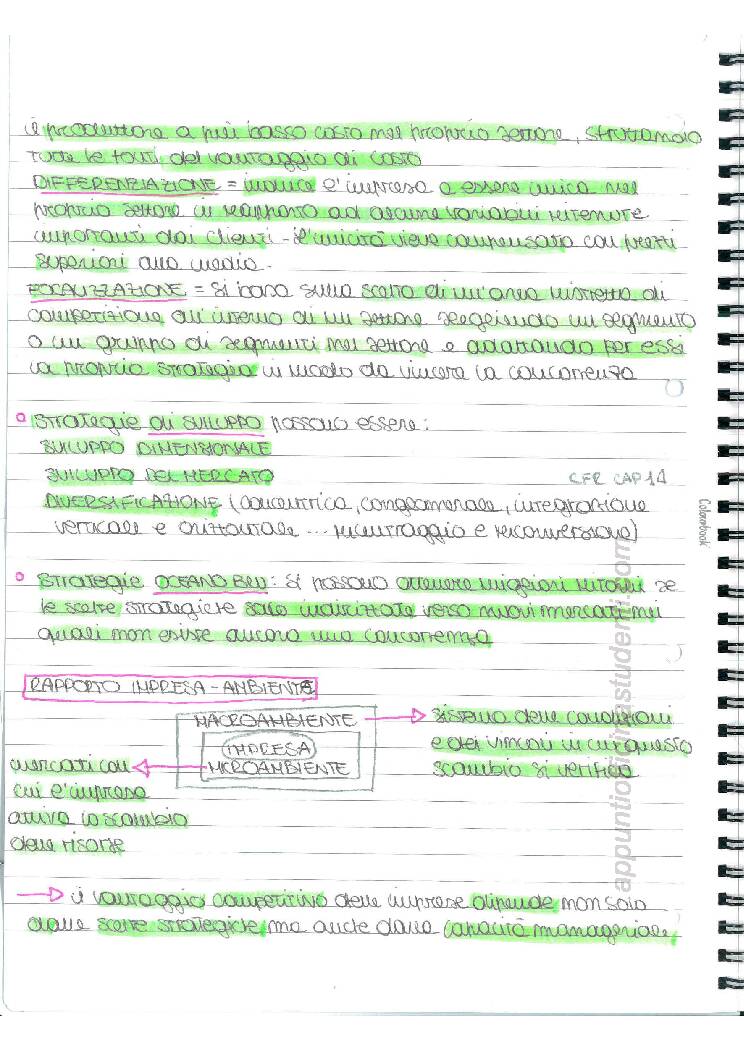 il produttore a più basso costo nel proprio settore, sfruttando
tutte le fonti del vantaggio di costo
DIFFERENZIAZIONE = induce l'impresa a essere unica nel
proprio settore in rapporto ad alcune variabili ritenute
importanti dai clienti - L'unicità viene compensata con prezzi
superiori alla media.
FOCALIZZAZIONE = si basa sulla scelta di un'area ristretta di
competizione all'interno di un settore scegliendo un segmento
o un gruppo di segmenti nel settore e adattando per essi
la propria strategia in modo da vincere la concorrenza
Strategie di SVILUPPO possono essere:
SVILUPPO DIMENSIONALE
SVILUPPO DEL MERCATO
CFR CAP 14
DIVERSIFICAZIONE (concentrica, conglomerale, integrazione
verticale e orizzontale ... ricentraggio e riconversione)
Colornbook
Strategie OCEANO BLU: si possono ottenere migliori ritorni se
le scelte strategiche sono indirizzate verso nuovi mercati nei
quali non esiste ancora una concorrenza
RAPPORTO IMPRESA - AMBIENTE
MACROAMBIENTE → sistema delle condizioni
e dei vincoli in cui questo
scambio si verifica
IMPRESA
MICROAMBIENTE
mercati con
cui l'impresa
attiva lo scambio
delle risorse
→ il vantaggio competitivo delle imprese dipende non solo
dalle scelte strategiche ma anche dalla capacità manageriale,